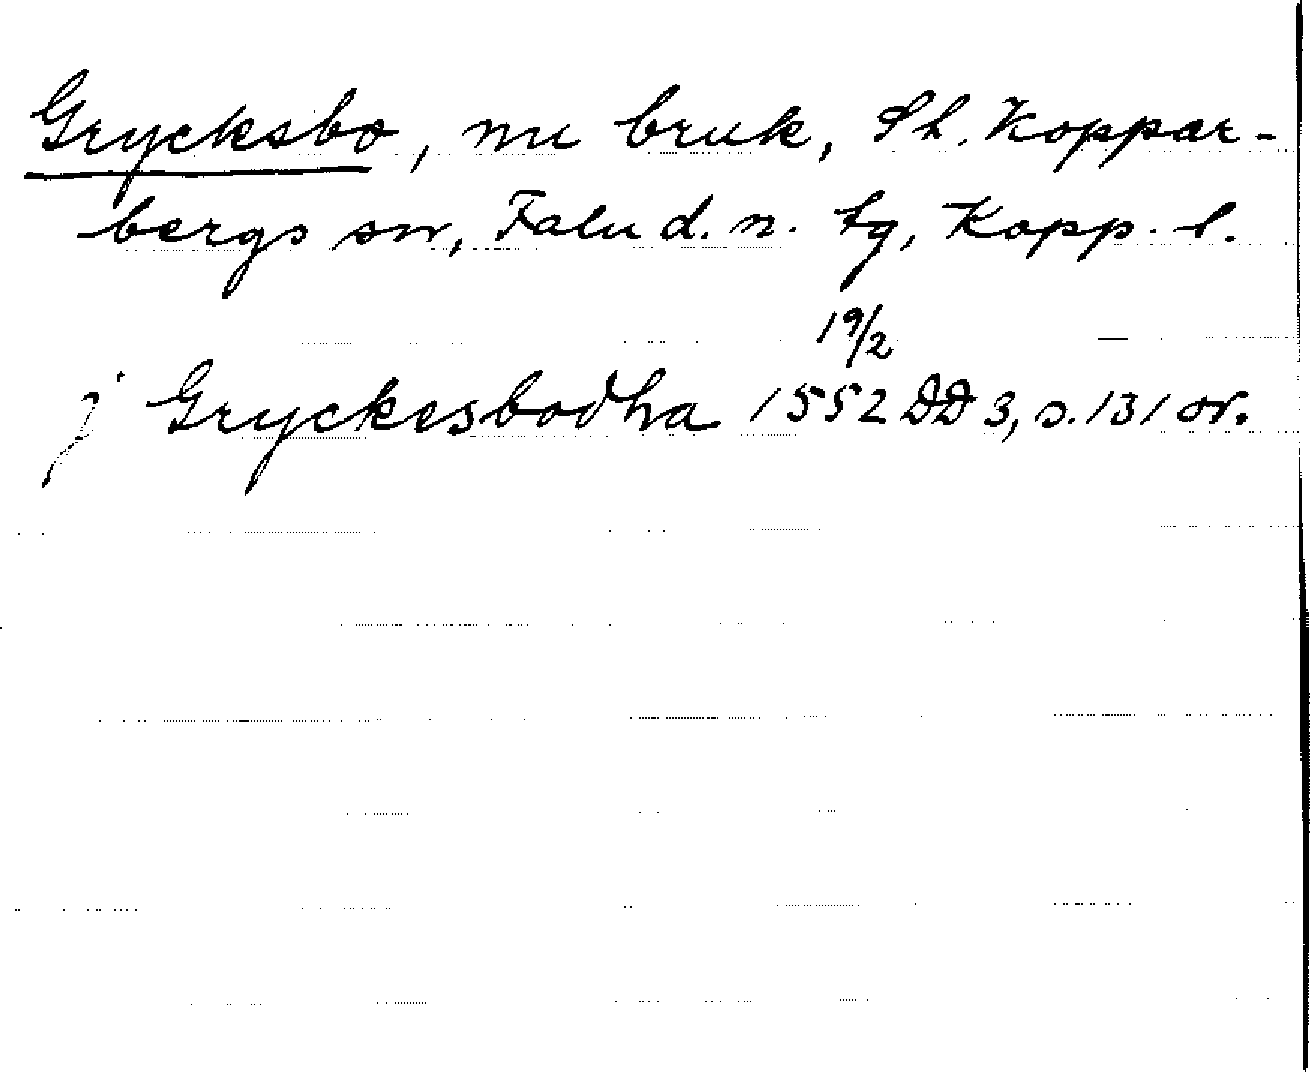 Grycksbo, nu bruk, Sh. Koppar-
bergs sn, Falu d. n. tg, Kopp. l.
19/2
j Gryckesbodha 1552 DD 3, s. 131 or.